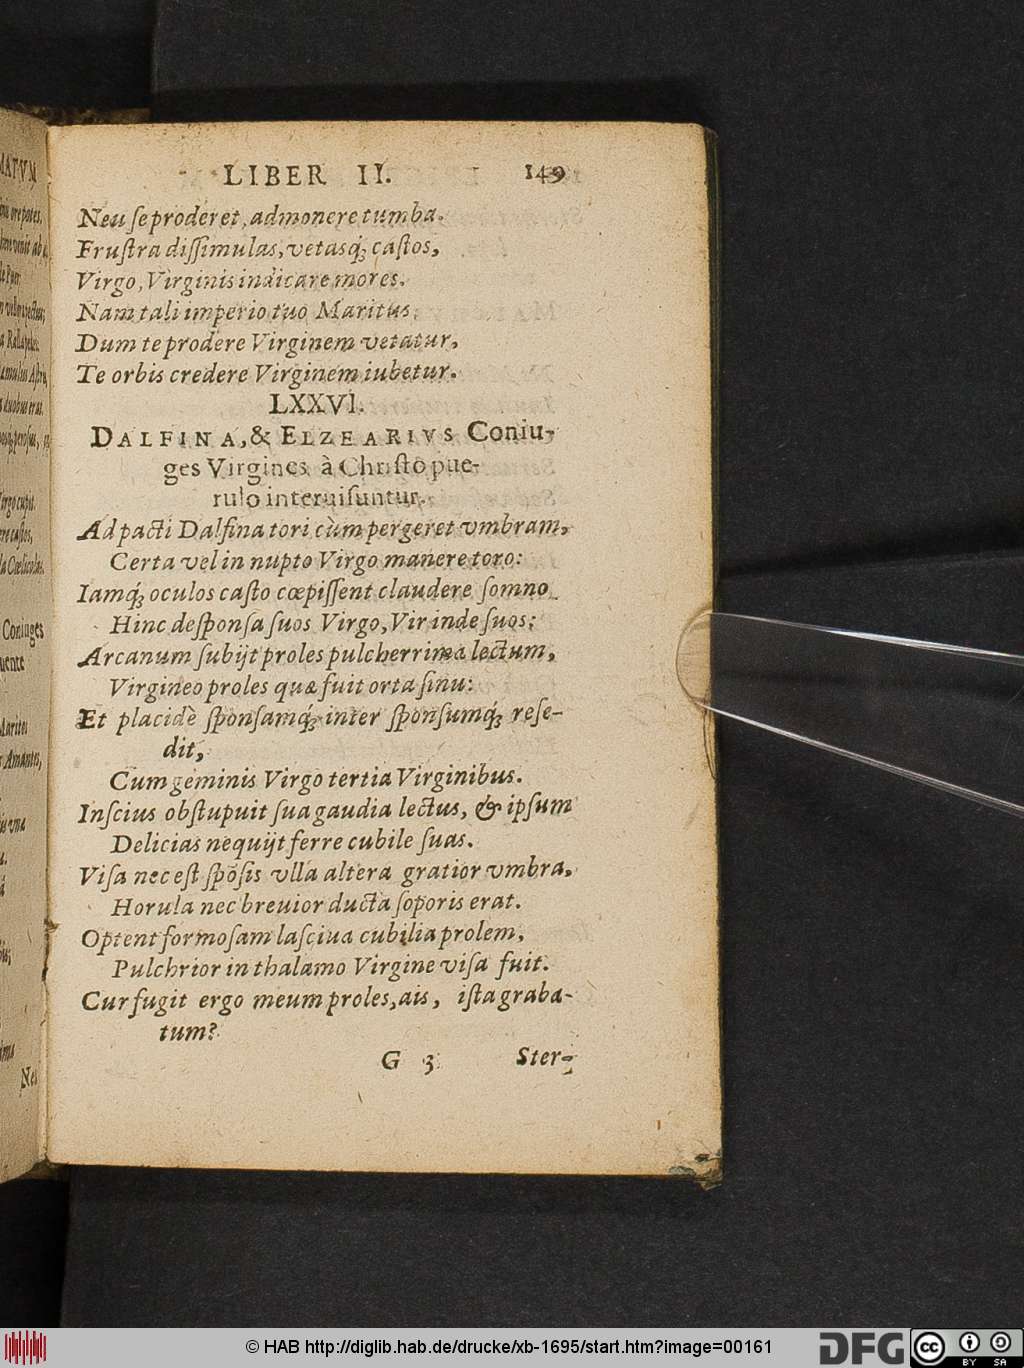 LIBER II. 149
Neu se proderet, admonere tumba.
Frustra dissimulas, vetasq́; castos,
Virgo, Virginis indicare mores.
Nam tali imperio tuo Maritus,
Dum te prodere Virginem vetatur,
Te orbis credere Virginem iubetur.
LXXVI.
DALFINA, & ELZEARIVS Coniu-
ges Virgines à Christo pue-
rulo interuisuntur.
Ad pacti Dalfina tori cùm pergeret vmbram,
Certa vel in nupto Virgo manere toro:
Iamq́; oculos casto cœpissent claudere somno
Hinc desponsa suos Virgo, Vir inde suos:
Arcanum subijt proles pulcherrima lectum,
Virgineo proles quæ fuit orta sinu:
Et placidè sponsamq́; inter sponsumq́; rese-
dit,
Cum geminis Virgo tertia Virginibus.
Inscius obstupuit sua gaudia lectus, & ipsum
Delicias nequijt ferre cubile suas.
Visa nec est spōsis vlla altera gratior vmbra,
Horula nec breuior ducta soporis erat.
Optent formosam lasciua cubilia prolem,
Pulchrior in thalamo Virgine visa fuit.
Cur fugit ergo meum proles, ais, ista graba-
tum?
G 3 Ster-
MATVM
Coniuges
Maritus
Amantes,
Neu
© HAB http://diglib.hab.de/drucke/xb-1695/start.htm?image=00161
DFG
cc
BY SA